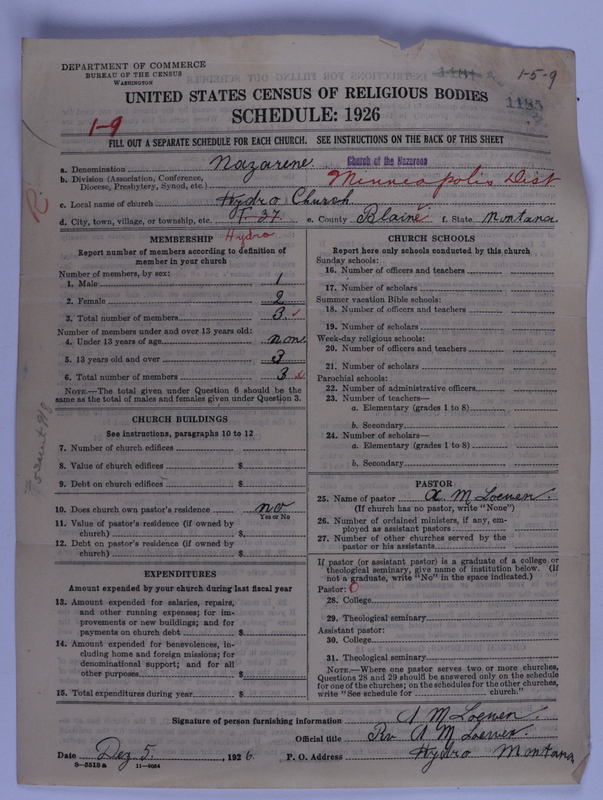 DEPARTMENT OF COMMERCE
BUREAU OF THE CENSUS
WASHINGTON
1184
1-5-9
1185
UNITED STATES CENSUS OF RELIGIOUS BODIES
SCHEDULE: 1926
1-9
FILL OUT A SEPARATE SCHEDULE FOR EACH CHURCH. SEE INSTRUCTIONS ON THE BACK OF THIS SHEET
a. Denomination Nazarene Church of the Nazarene
b. Division (Association, Conference, Diocese, Presbytery, Synod, etc.) Minneapolis Dist
c. Local name of church Hydro Church
d. City, town, village, or township, etc. T-37 e. County Blaine f. State Montana
Hydro
R
MEMBERSHIP
Report number of members according to definition of
member in your church
Number of members, by sex:
1. Male 1
2. Female 2
3. Total number of members 3
Number of members under and over 13 years old:
4. Under 13 years of age non
5. 13 years old and over 3
6. Total number of members 3
NOTE.—The total given under Question 6 should be the
same as the total of males and females given under Question 3.
CHURCH BUILDINGS
See instructions, paragraphs 10 to 12
7. Number of church edifices
8. Value of church edifices $
9. Debt on church edifices $
10. Does church own pastor's residence no
Yes or No
11. Value of pastor's residence (if owned by
church) $
12. Debt on pastor's residence (if owned by
church) $
EXPENDITURES
Amount expended by your church during last fiscal year
13. Amount expended for salaries, repairs,
and other running expenses; for im-
provements or new buildings; and for
payments on church debt $
14. Amount expended for benevolences, in-
cluding home and foreign missions; for
denominational support; and for all
other purposes $
15. Total expenditures during year $
CHURCH SCHOOLS
Report here only schools conducted by this church
Sunday schools:
16. Number of officers and teachers
17. Number of scholars
Summer vacation Bible schools:
18. Number of officers and teachers
19. Number of scholars
Week-day religious schools:
20. Number of officers and teachers
21. Number of scholars
Parochial schools:
22. Number of administrative officers
23. Number of teachers—
a. Elementary (grades 1 to 8)
b. Secondary
24. Number of scholars—
a. Elementary (grades 1 to 8)
b. Secondary
PASTOR
25. Name of pastor A. M Loewen
(If church has no pastor, write "None")
26. Number of ordained ministers, if any, em-
ployed as assistant pastors
27. Number of other churches served by the
pastor or his assistants
If pastor (or assistant pastor) is a graduate of a college or
theological seminary, give name of institution below. (If
not a graduate, write "No" in the space indicated.)
Pastor: O
28. College
29. Theological seminary
Assistant pastor:
30. College
31. Theological seminary
NOTE.—Where one pastor serves two or more churches,
Questions 28 and 29 should be answered only on the schedule
for one of the churches; on the schedules for the other churches,
write "See schedule for church."
Signature of person furnishing information A M Loewen.
Official title Rv A M Loewen.
Date Dez 5, 1926. P. O. Address Hydro Montana
8-5518a 11-9054